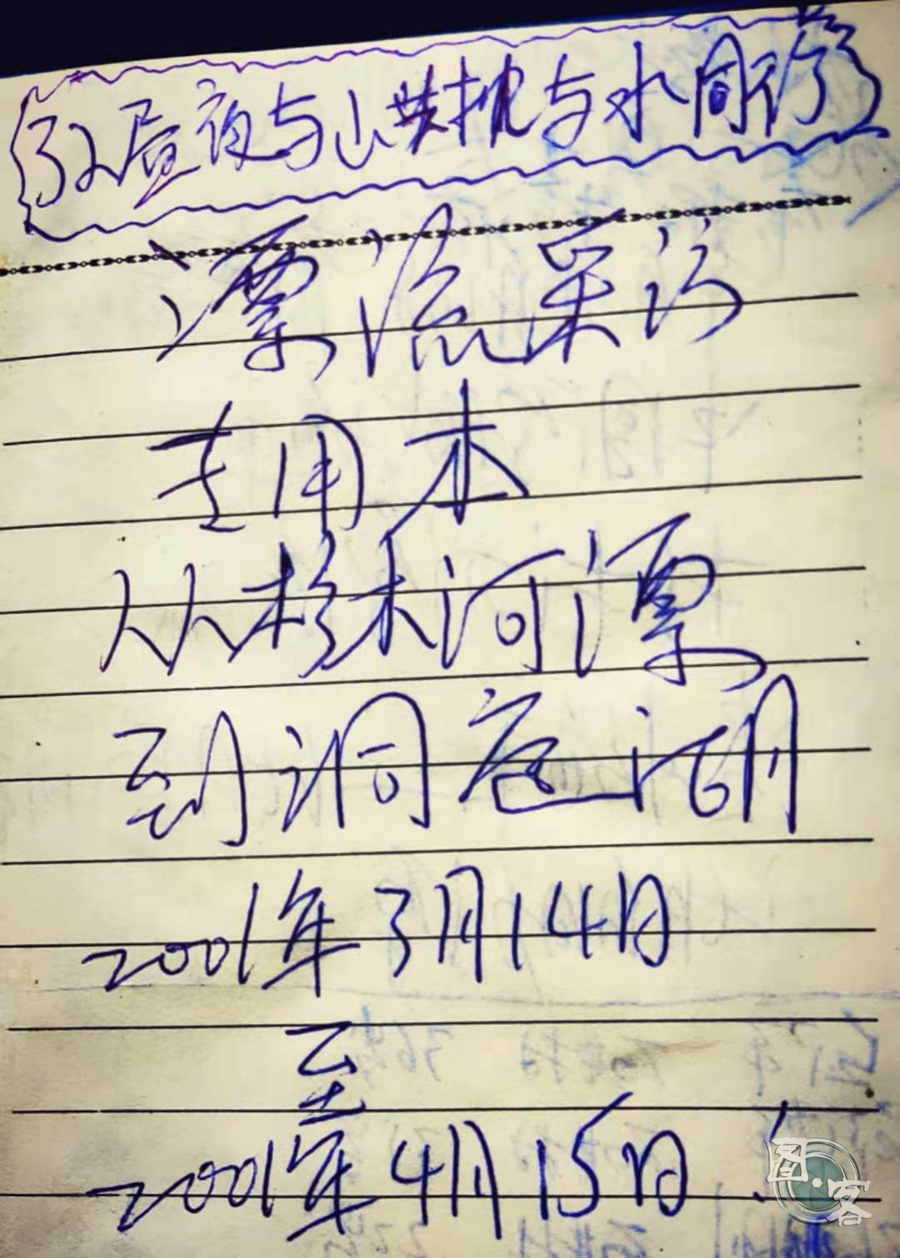 32昼夜与山共枕与水同行
漂流采访
专用本
从杉木河漂
到洞庭湖
2001年3月14日
至
2001年4月15日
图·客